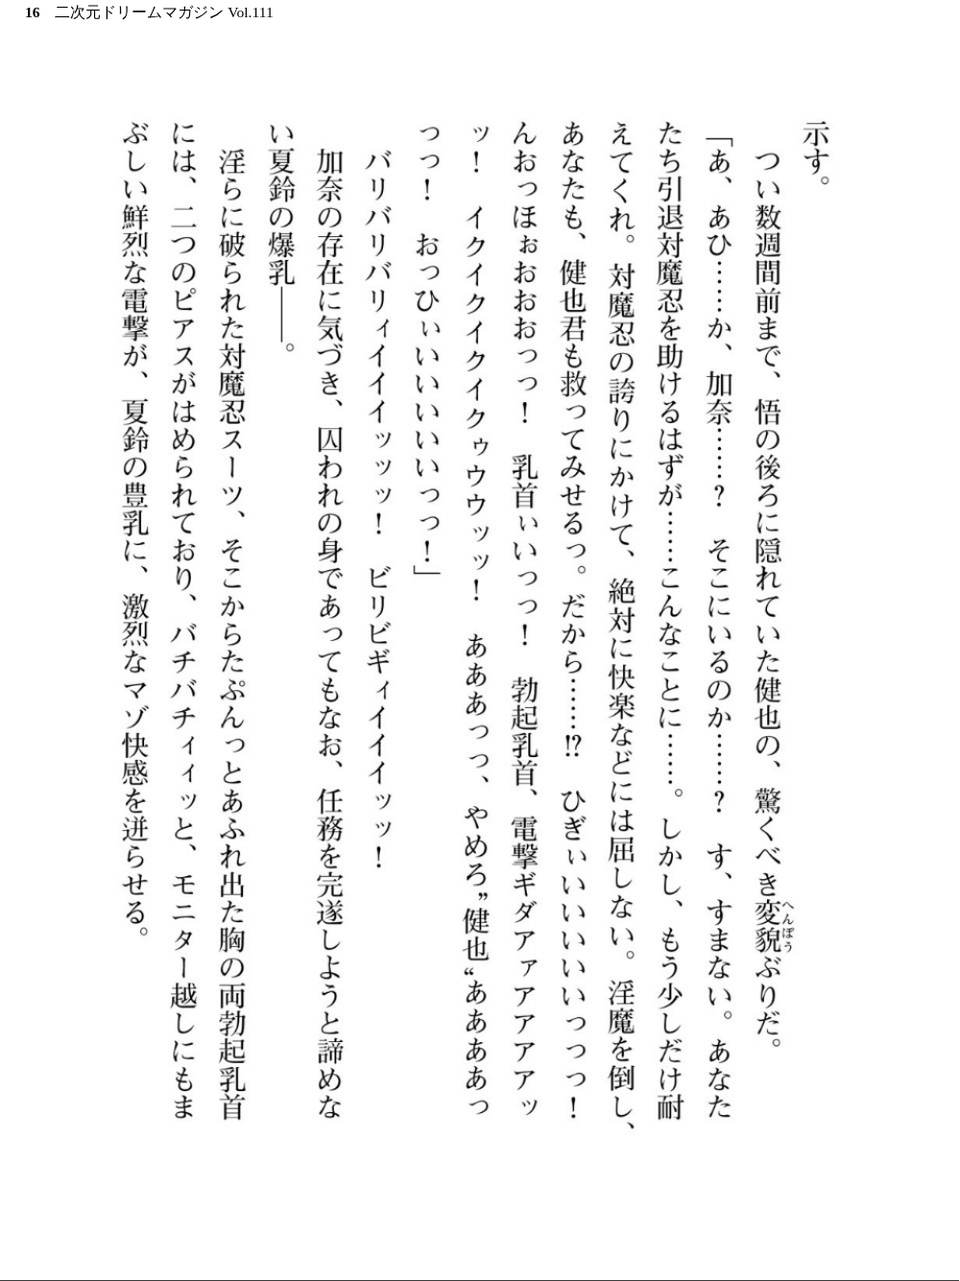 16 二次元ドリームマガジン Vol.111
示す。
　つい数週間前まで、悟の後ろに隠れていた健也の、驚くべき変貌ぶりだ。
へんぼう
「あ、あひ……か、加奈……？　そこにいるのか……？　す、すまない。あなた
たち引退対魔忍を助けるはずが……こんなことに……。しかし、もう少しだけ耐
えてくれ。対魔忍の誇りにかけて、絶対に快楽などには屈しない。淫魔を倒し、
あなたも、健也君も救ってみせるっ。だから……⁉　ひぎぃいいいいいっっっ！
んおっほぉおおおっっ！　乳首ぃいっっ！　勃起乳首、電撃ギダアァアアアアッ
ッ！　イクイクイクイクゥウウッッ！　あああっっ、やめろ”健也“ああああっ
っっ！　おっひぃいいいいいっっ！」
　バリバリバリィイイイッッッ！　ビリビギィイイイッッ！
　加奈の存在に気づき、囚われの身であってもなお、任務を完遂しようと諦めな
い夏鈴の爆乳――。
　淫らに破られた対魔忍スーツ、そこからたぷんっとあふれ出た胸の両勃起乳首
には、二つのピアスがはめられており、バチバチィィッと、モニター越しにもま
ぶしい鮮烈な電撃が、夏鈴の豊乳に、激烈なマゾ快感を迸らせる。